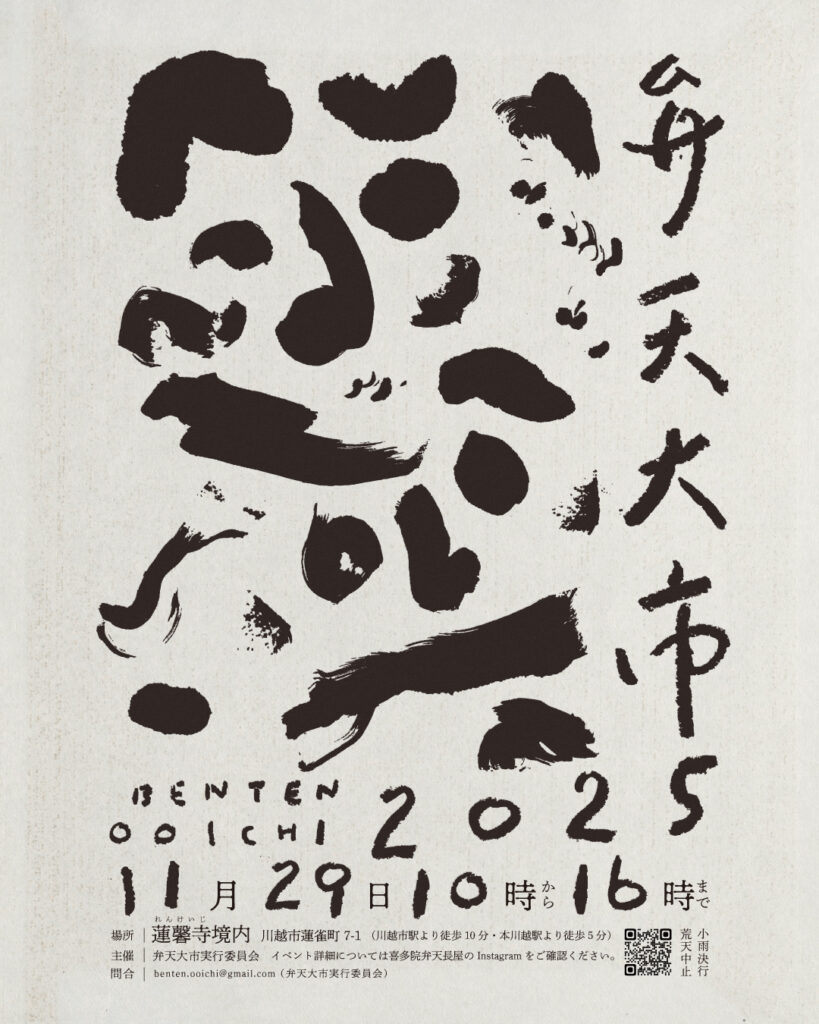 弁天大市
BENTEN
OOICHI
2025
11月29日10時から16時まで
れんけいじ
場所 | 蓮馨寺境内 川越市蓮雀町 7-1 (川越市駅より徒歩10分・本川越駅より徒歩5分)
主催 | 弁天大市実行委員会 イベント詳細については喜多院弁天長屋の Instagram をご確認ください。
問合 | benten.ooichi@gmail.com (弁天大市実行委員会)
小雨決行
荒天中止